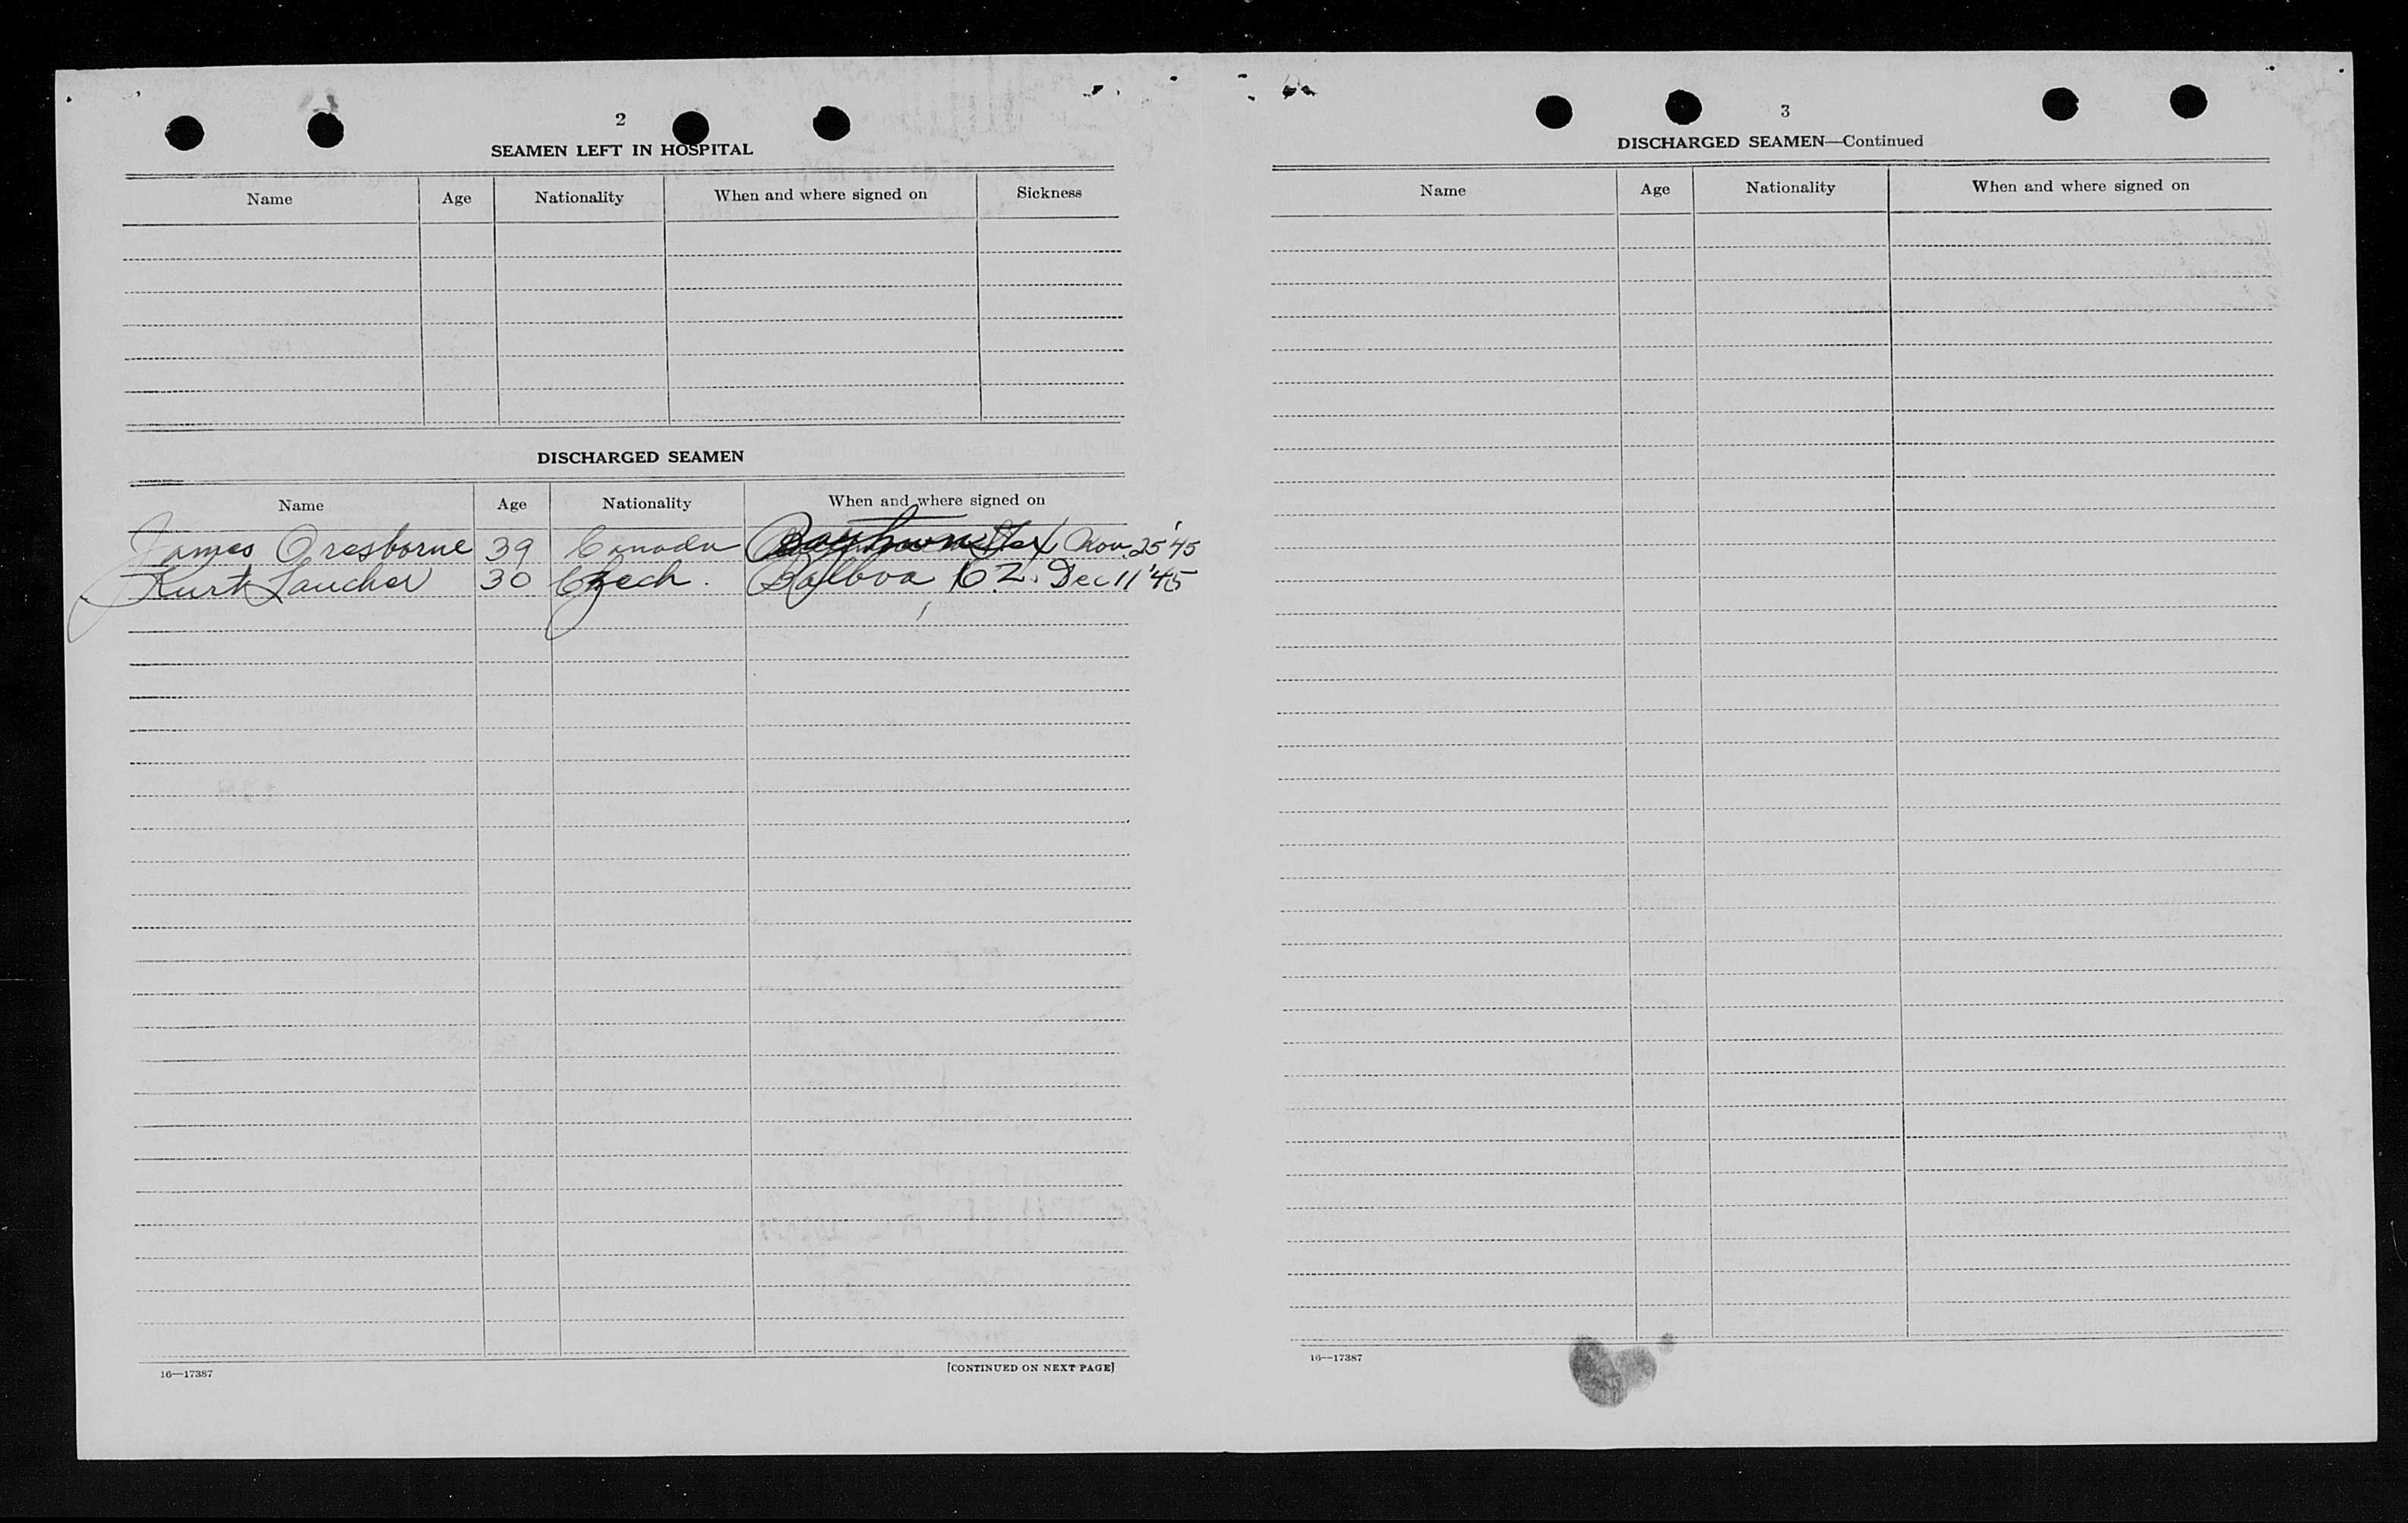 2
SEAMEN LEFT IN HOSPITAL
Name Age Nationality When and where signed on Sickness
DISCHARGED SEAMEN
Name Age Nationality When and where signed on
James Oresborne 39 Canada Baytown Tex Nov. 25 '45
Kurt Laucher 30 Czech. Balboa, C.Z. Dec 11 '45
16—17387 [CONTINUED ON NEXT PAGE]
3
DISCHARGED SEAMEN—Continued
Name Age Nationality When and where signed on
16—17387